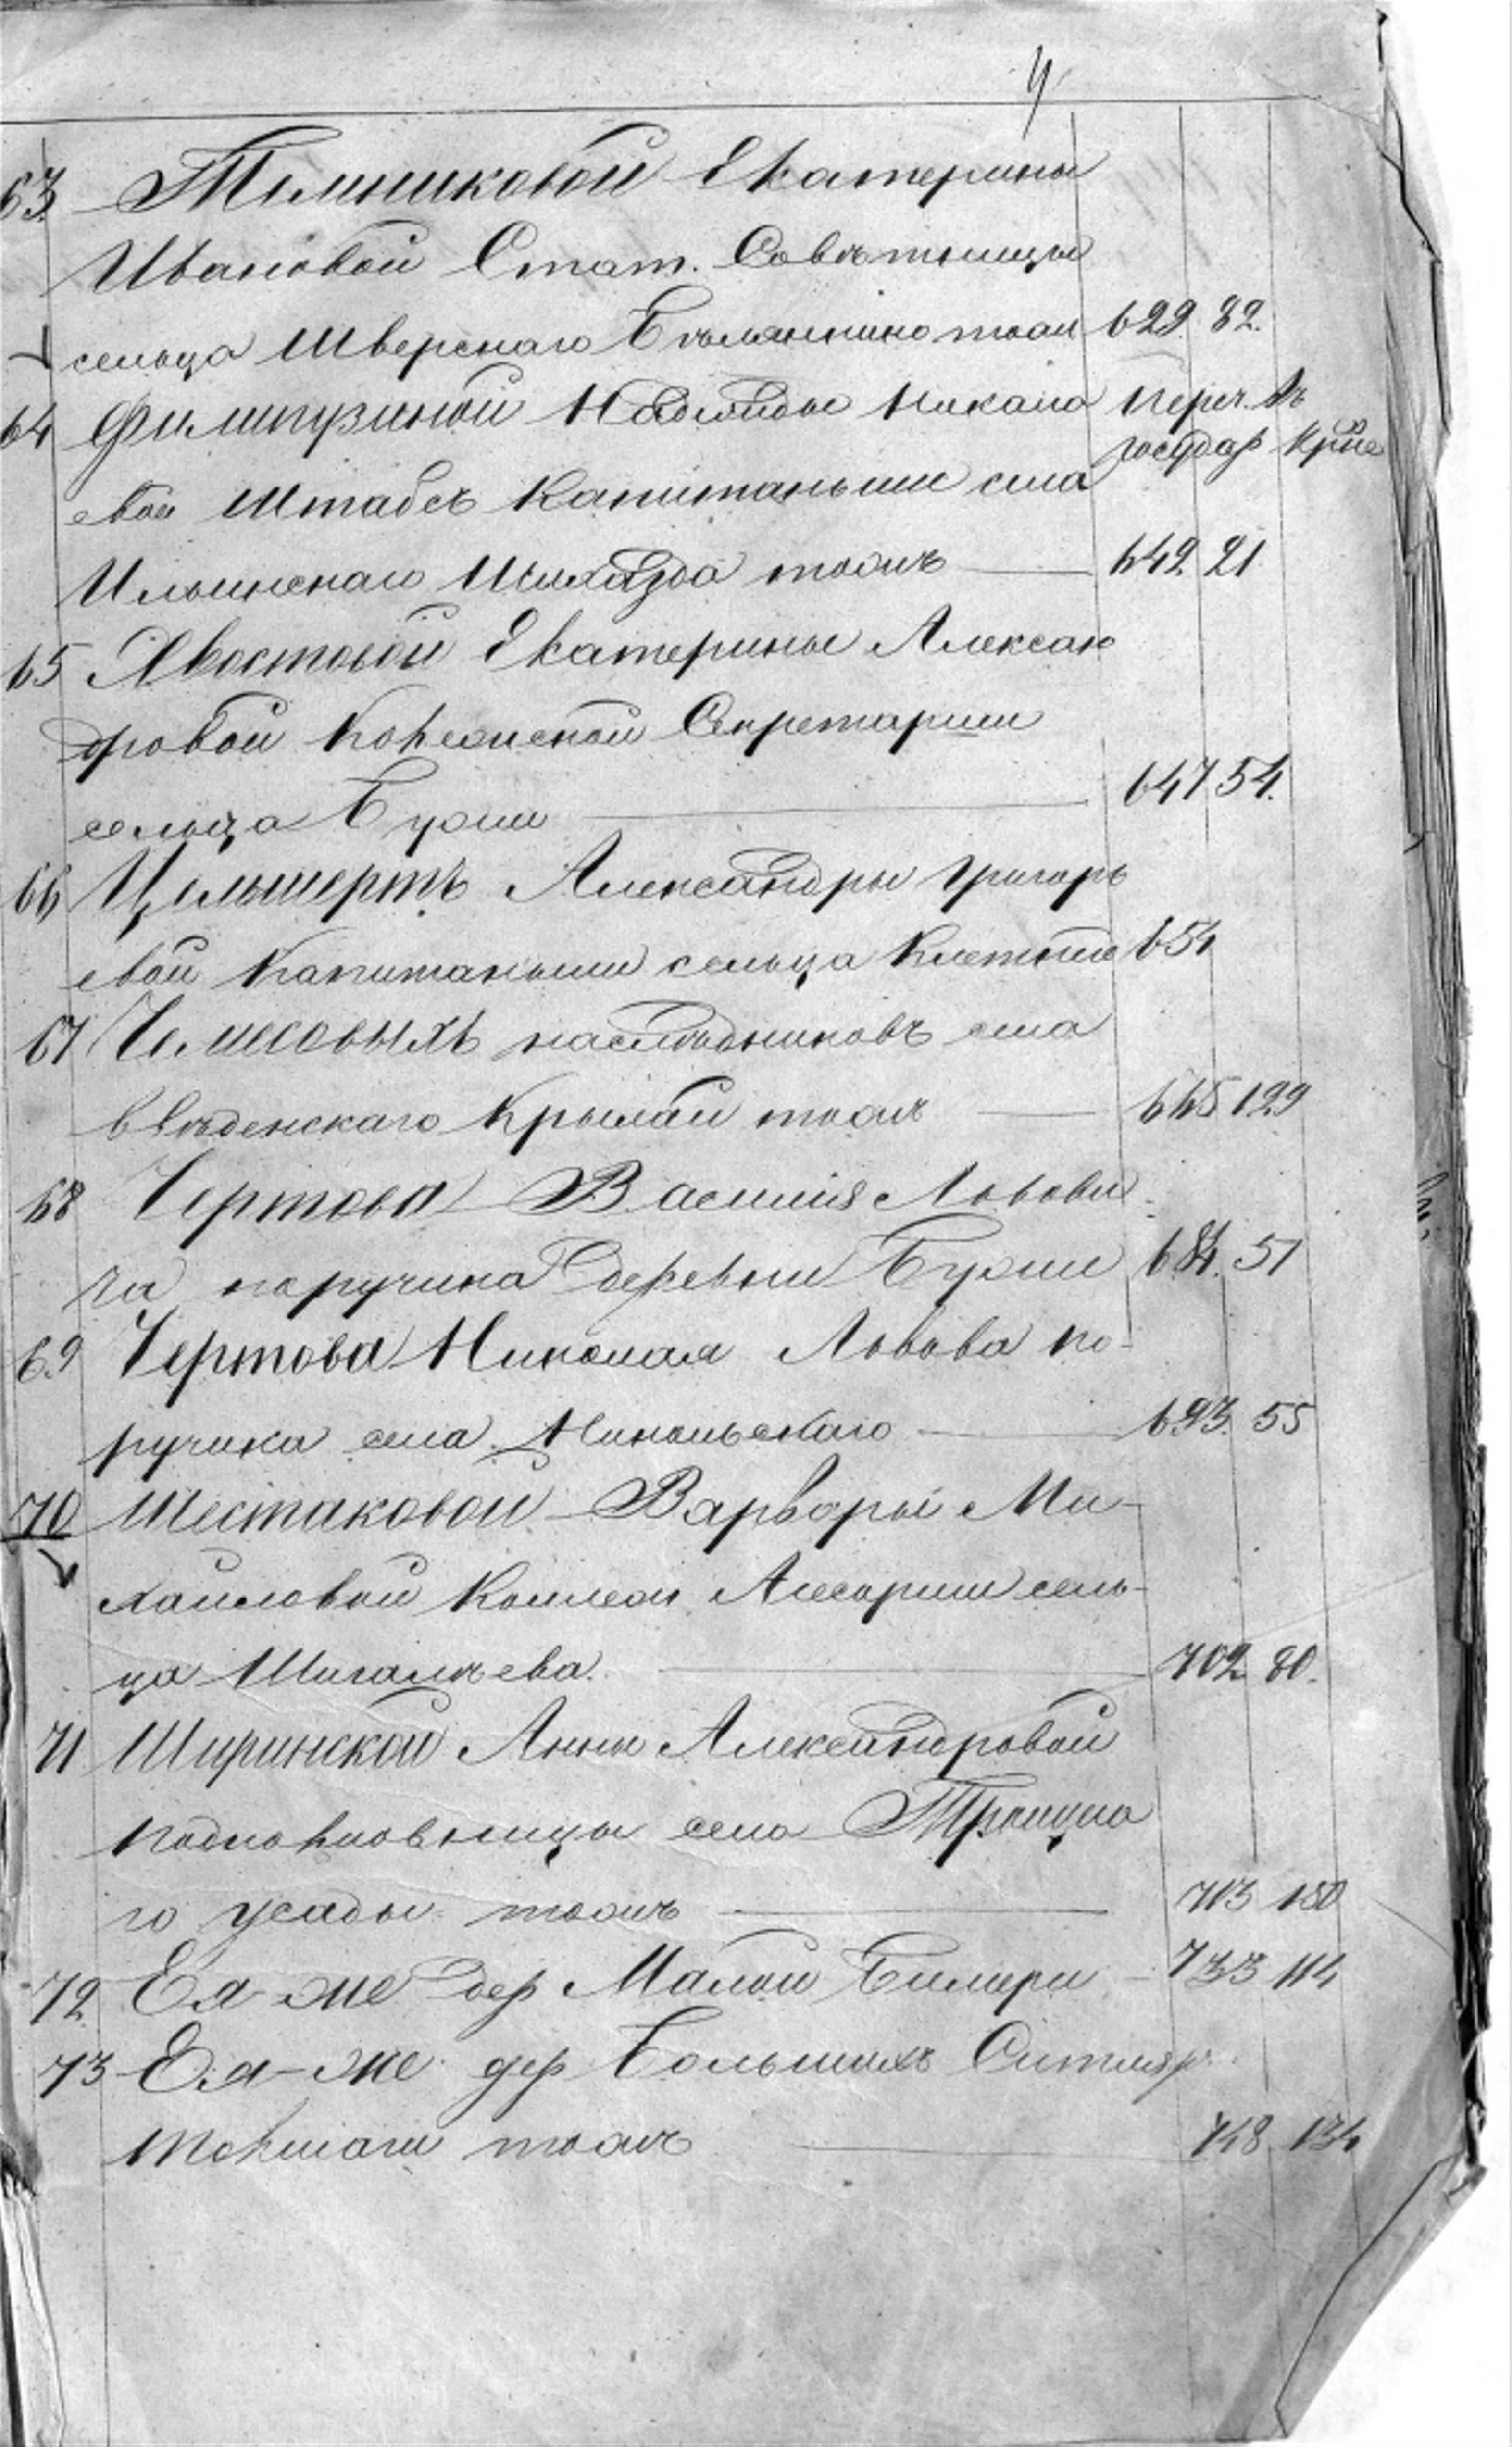 63. Тельниковой Екатерины
Ивановой Стат. Совѣтницы
сельца Тверскаго Емельянкино тоже 629. 82.
64 Филипузиной Надежды Никола Переч. въ
государ Крѣ
евой Штабсъ Капитаньши села
Ильинскаго тожъ 642. 21
65 Хвостовой Екатерины Алексан
дровой Колежской Секретарши
сельца Бурши 647 54.
66 Цельшертъ Александры Григорь
евой Капитаньши сельца 654
67 Чемесовыхъ наслѣдниковъ села
Введенскаго Крылай тожъ 665 129
68 Чертова Василія Львови
ча поручика деревни Бурши 684. 51
69 Чертова Николая Львова по-
ручика села Никольскаго 693. 55
70 Шестаковой Варвары Ми-
хайловой Коллеж Асесорши сель-
ца Шигалѣева. 702 80.
71 Ширинской Анны Александровой
подполковницы села Троицка
го усады тожъ 713 180
72 Ея-же дер Малой Биляри 733 114
73 Ея-же дер Большихъ
тожъ 748 134